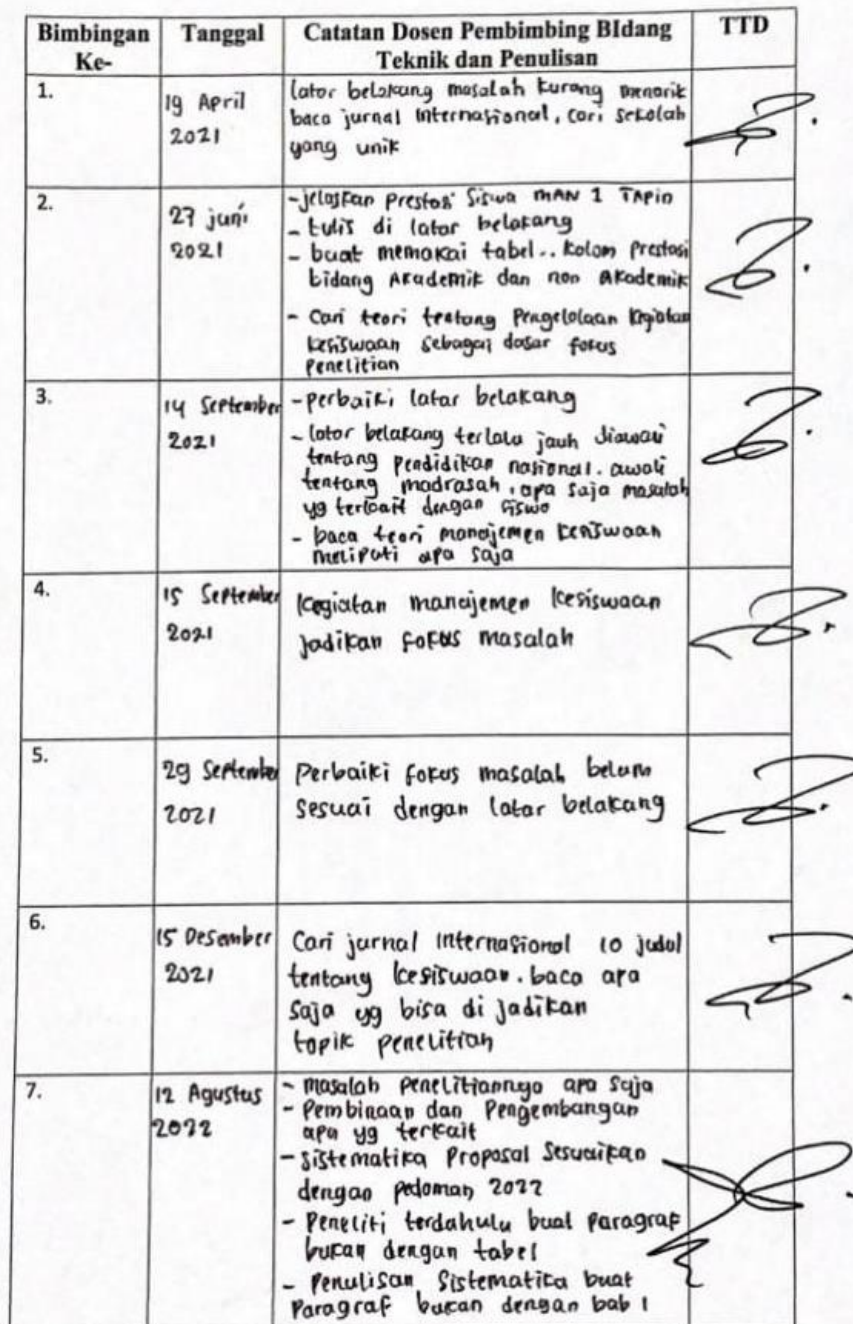 Bimbingan Ke-
Tanggal
Catatan Dosen Pembimbing BIdang Teknik dan Penulisan
TTD
1.
19 April
2021
lator belakang masalah kurang menarik
baca jurnal Internasional, cari sekolah
yang unik
2.
27 juni
2021
- jelaskan Prestasi Siswa MAN 1 TAPin
- tulis di lator belakang
- buat memakai tabel.. kolom Prestasi
bidang Akademik dan non Akademik
- Cari teori tentang Pengelolaan kegiatan
kesiswaan sebagai dasar fokus
penelitian
3.
14 September
2021
- perbaiki latar belakang
- lator belakang terlalu jauh diawali
tentang pendidikan nasional. awali
tentang madrasah, apa saja masalah
yg terkait dengan siswa
- baca teori manajemen kesiswaan
meliputi apa saja
4.
15 September
2021
Kegiatan manajemen kesiswaan
jadikan fokus masalah
5.
29 September
2021
Perbaiki fokus masalah belum
sesuai dengan latar belakang
6.
15 Desember
2021
Cari jurnal Internasional 10 judul
tentang kesiswaan. baca apa
saja yg bisa di jadikan
topik penelitian
7.
12 Agustus
2022
- masalah penelitiannya apa saja
- Pembinaan dan Pengembangan
apa yg terkait
- sistematika Proposal Sesuaikan
dengan pedoman 2022
- Peneliti terdahulu buat Paragraf
bukan dengan tabel
- Penulisan Sistematika buat
Paragraf bukan dengan bab 1